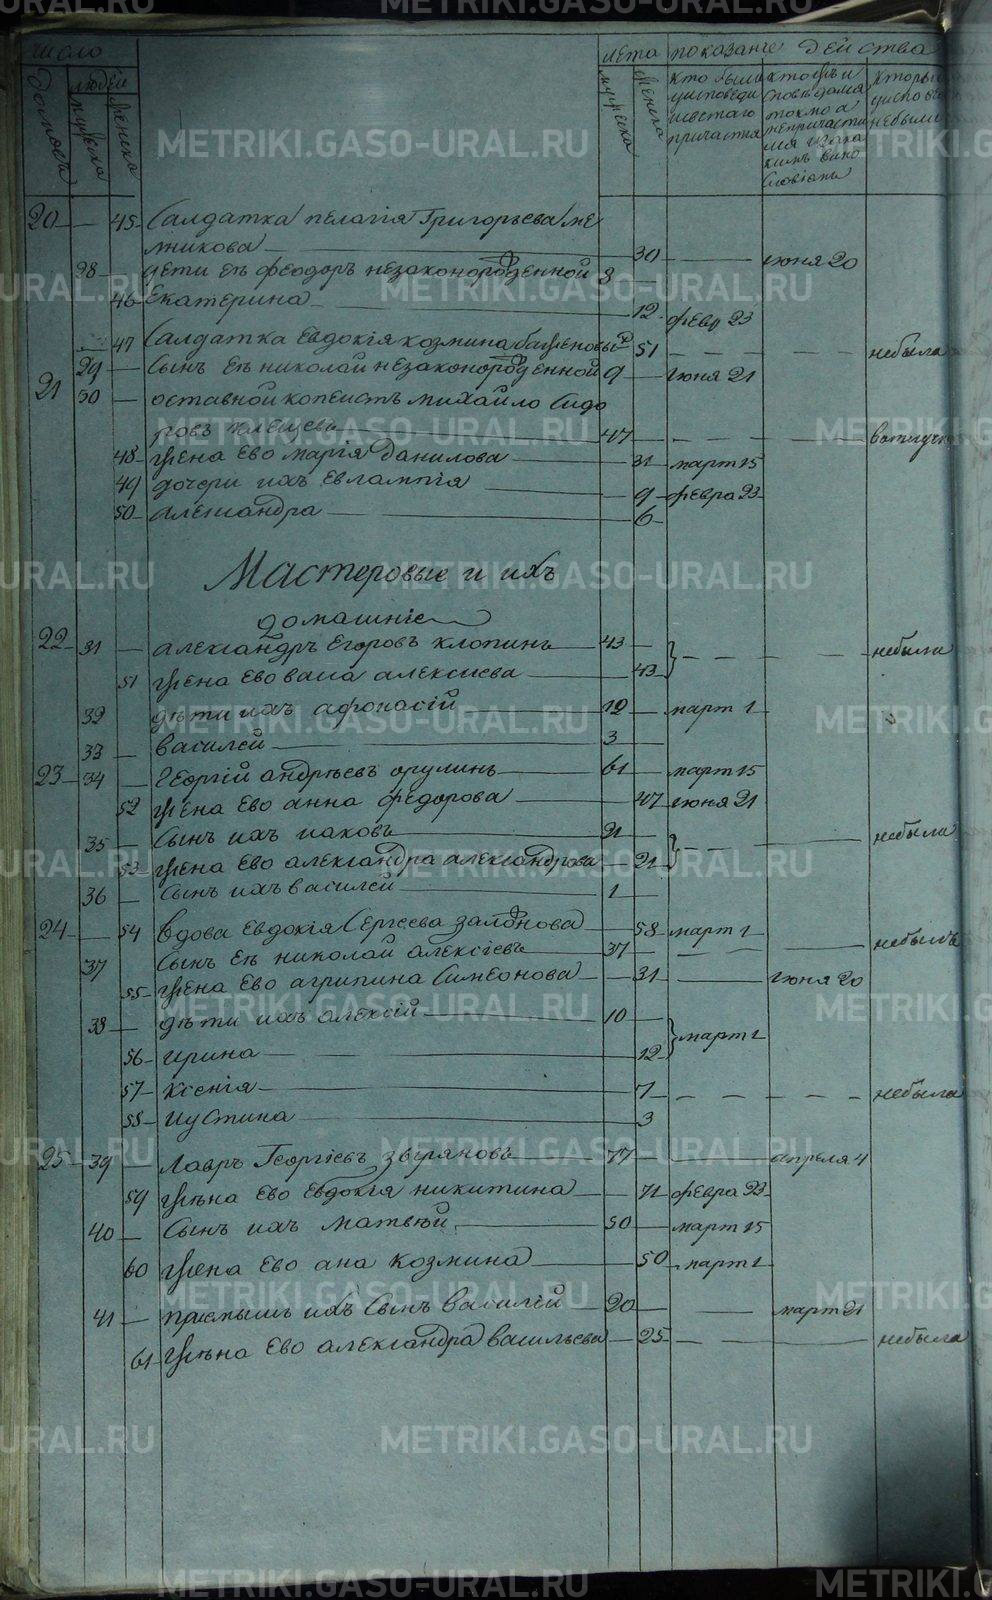 число
лета показание действа
домовъ
людей
мужеска
женска
мужеска
женска
кто были
у исповеди
и святаго
причастия
которыи
у исповеди
небыли
20 — 45 Салдатка пелагія Григорьева ме
лникова — 30 — июня 20
28 — дети ея феодоръ незаконорожденной 8
46 Екатерина — 12 февр 23
— 47 Салдатка Евдокія козмина 51 — небыла
29 — Сынъ ея николай незаконорожденной 9 — июня 21
21 30 — оставной копеистъ михайло Сидо
ровъ клещевъ — 47 — — — вотлучке
48 жена Ево марія данилова — 31 март 15
49 дочери ихъ евлампія — 9 февра 23
50 александра — 6
Мастеровые и ихъ
домашніе
22 31 — александръ Егоровъ клопинъ 43 — — — небыли
51 жена Ево васа алексиева — 43
32 дѣти ихъ афонасій — 12 — март 1
33 — василей — 3 —
23 34 — Георгій андреевъ орулинъ — 61 — март 15
52 жена Ево анна федорова — 47 июня 21
35 — Сынъ ихъ иаковъ — 21 — — — небыли
53 жена Ево александра александрова 21
36 — Сынъ ихъ василей — 1 —
24 — 54 вдова Евдокія Сергеева — 58 март 1
37 Сынъ ея николай алексіевъ 37 — — небылъ
55 жена Ево агрипина Симеонова — 31 — июня 20
38 — дѣти ихъ алексій — 10 —
56 ирина — 12 март 1
57 ксенія — 7 — — — небыла
58 иустина — 3
25 39 — лавръ Георгіевъ звѣряновъ 77 — апреля 4
59 жена Ево Евдокія никитина — 71 февра 23
40 — Сынъ ихъ матвѣй 50 — март 15
60 жена Ево ана козмина — 50 март 1
41 — приемышъ ихъ Сынъ василій — 20 — март 21
61 жена Ево александра васильева — 25 — небыла
METRIKI.GASO-URAL.RU